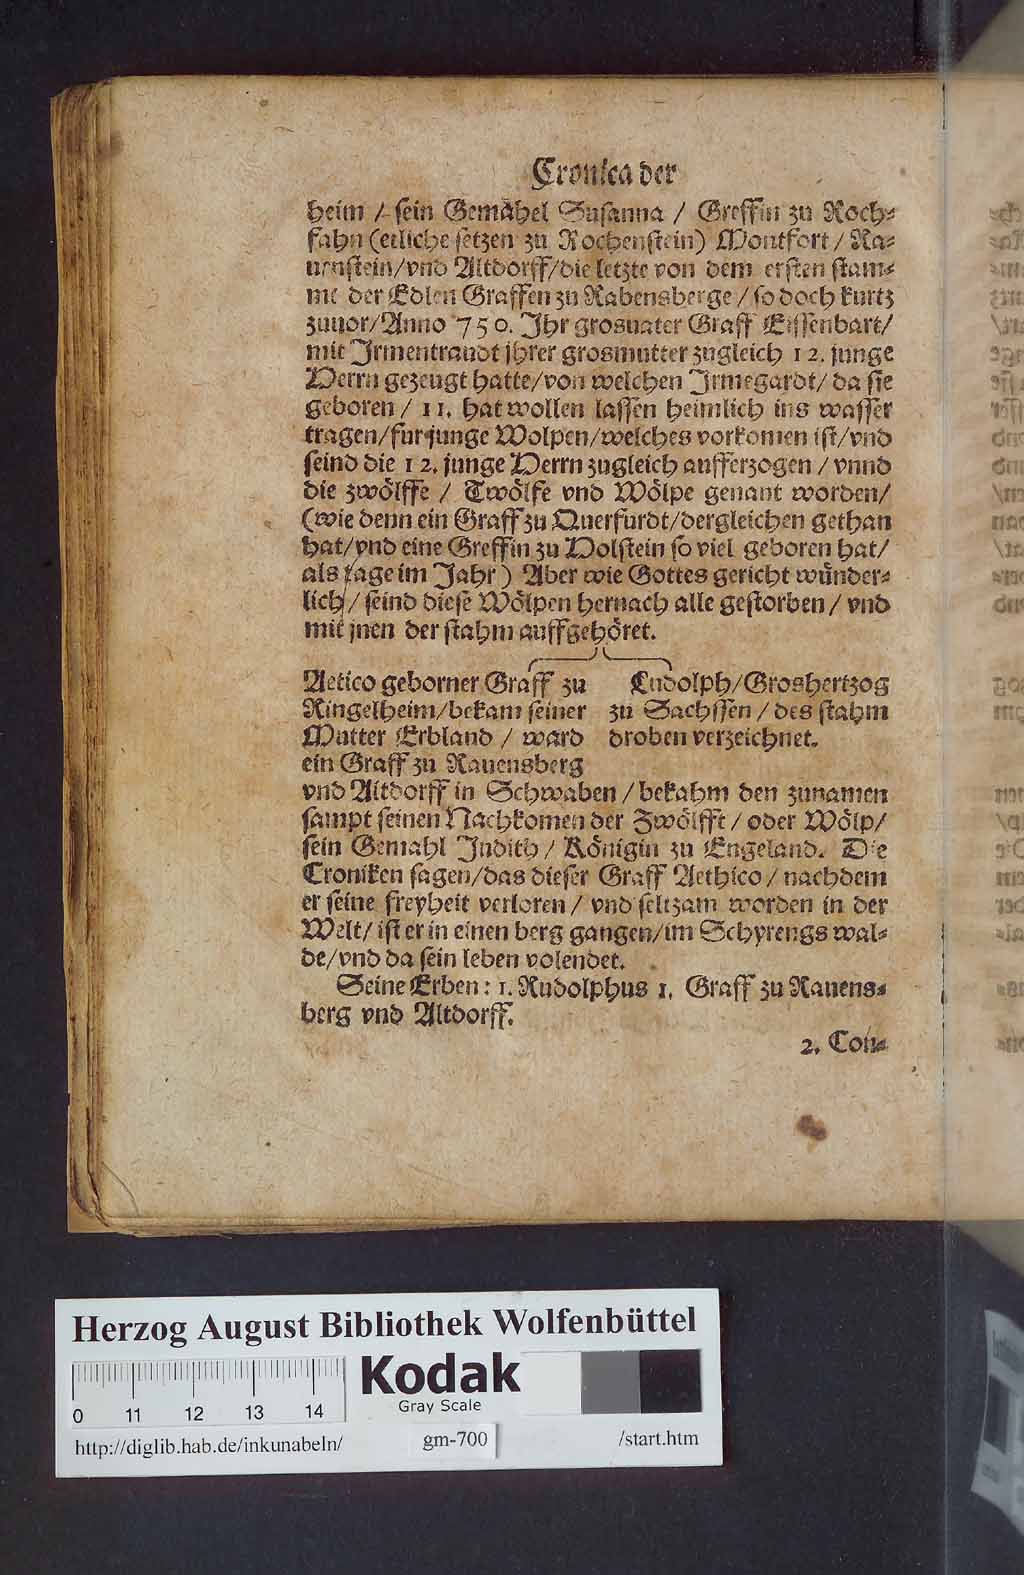 Cronica der
heim / sein Gemåhel Susanna / Greffin zu Roch⸗
fahn (etliche setzen zu Rochenstein) Montfort / Ra⸗
uenstein/vnd Altdorff/die letzte von dem ersten stam⸗
me der Edlen Graffen zu Rabensberge / so doch kurtz
zuuor/Anno 750. Ihr grosuater Graff Eissenbart/
mit Irmentraudt jhrer grosmutter zugleich 12. junge
Herrn gezeugt hatte/von welchen Irmegardt/ da sie
geboren / 11. hat wollen lassen heimlich ins wasser
tragen/fur junge Wolpen/welches vorkomen ist/vnd
seind die 12. junge Herrn zugleich aufferzogen / vnnd
die zwôlffe / Twôlfe vnd Wôlpe genant worden/
(wie denn ein Graff zu Querfurdt/dergleichen gethan
hat/vnd eine Greffin zu Holstein so viel geboren hat/
als tage im Jahr) Aber wie Gottes gericht wůnder⸗
lich / seind diese Wôlpen hernach alle gestorben / vnd
mit jnen der stahm auffgehôret.
Aetico geborner Graff zu
Ringelheim/bekam seiner
Mutter Erbland / ward
ein Graff zu Rauensberg
Ludolph/Groshertzog
zu Sachssen / des stahm
droben verzeichnet.
vnd Altdorff in Schwaben / bekahm den zunamen
sampt seinen Nachkomen der Zwôlfft / oder Wôlp/
sein Gemahl Judith / Kônigin zu Engeland. Die
Croniken sagen/das dieser Graff Aethico / nachdem
er seine freyheit verloren / vnd seltzam worden in der
Welt/ ist er in einen berg gangen/im Schyrengs wal⸗
de/vnd da sein leben volendet.
Seine Erben: 1. Rudolphus 1. Graff zu Rauens⸗
berg vnd Altdorff.
2. Con⸗
Herzog August Bibliothek Wolfenbüttel
Kodak
Gray Scale
0 11 12 13 14
http://diglib.hab.de/inkunabeln/ gm-700 /start.htm